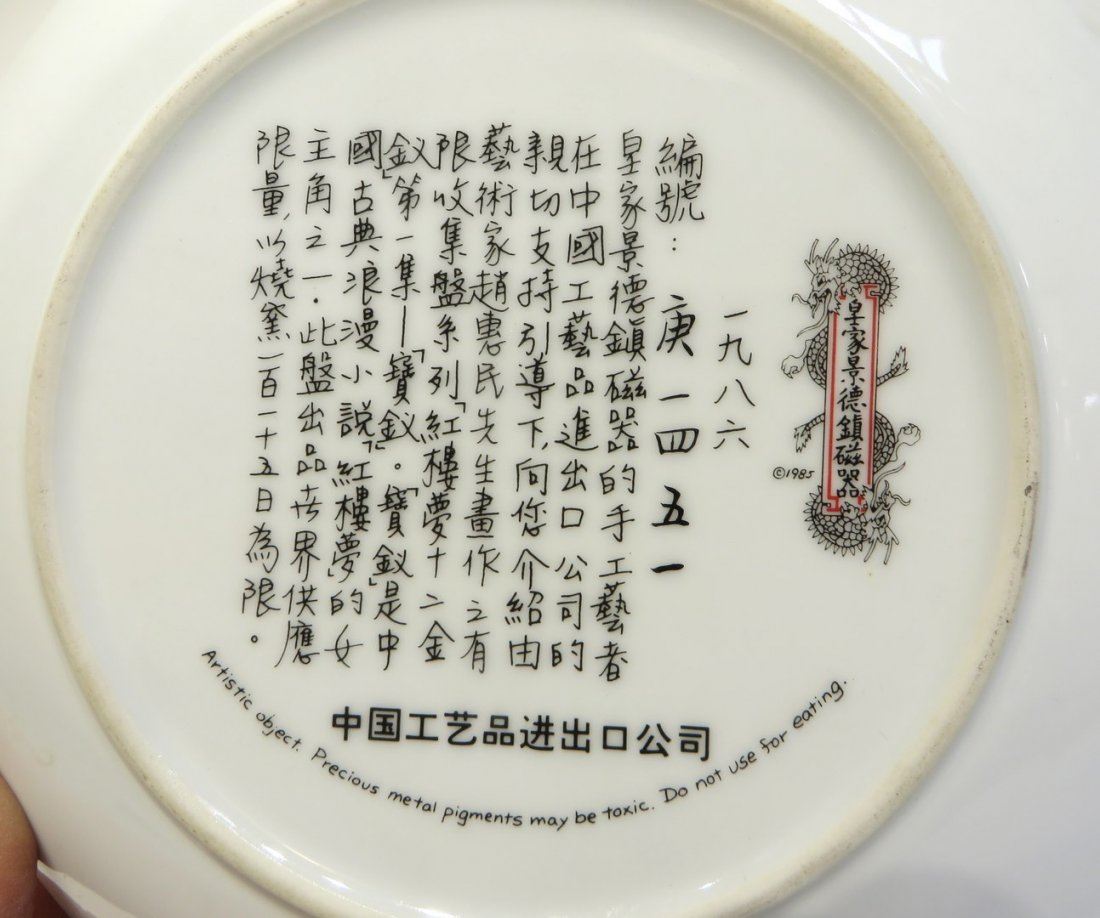 皇家景德鎮磁器
©1985
一九八六
編號：庚一四五一
皇家景德鎮磁器的手工藝者
在中國工藝品進出口公司的
親切支持引導下,向您介紹由
藝術家趙惠民先生畫作之有
限收集盤系列「紅樓夢十二金
釵」第一集—「寶釵」。「寶釵」是中
國古典浪漫小說「紅樓夢」的女
主角之一．此盤出品世界供應
限量,以燒窯一百一十五日為限。
中国工艺品进出口公司
Artistic object. Precious metal pigments may be toxic. Do not use for eating.